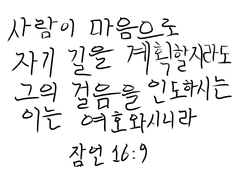 사람이 마음으로
자기 길을 계획할지라도
그의 걸음을 인도하시는
이는 여호와시니라
잠언 16:9